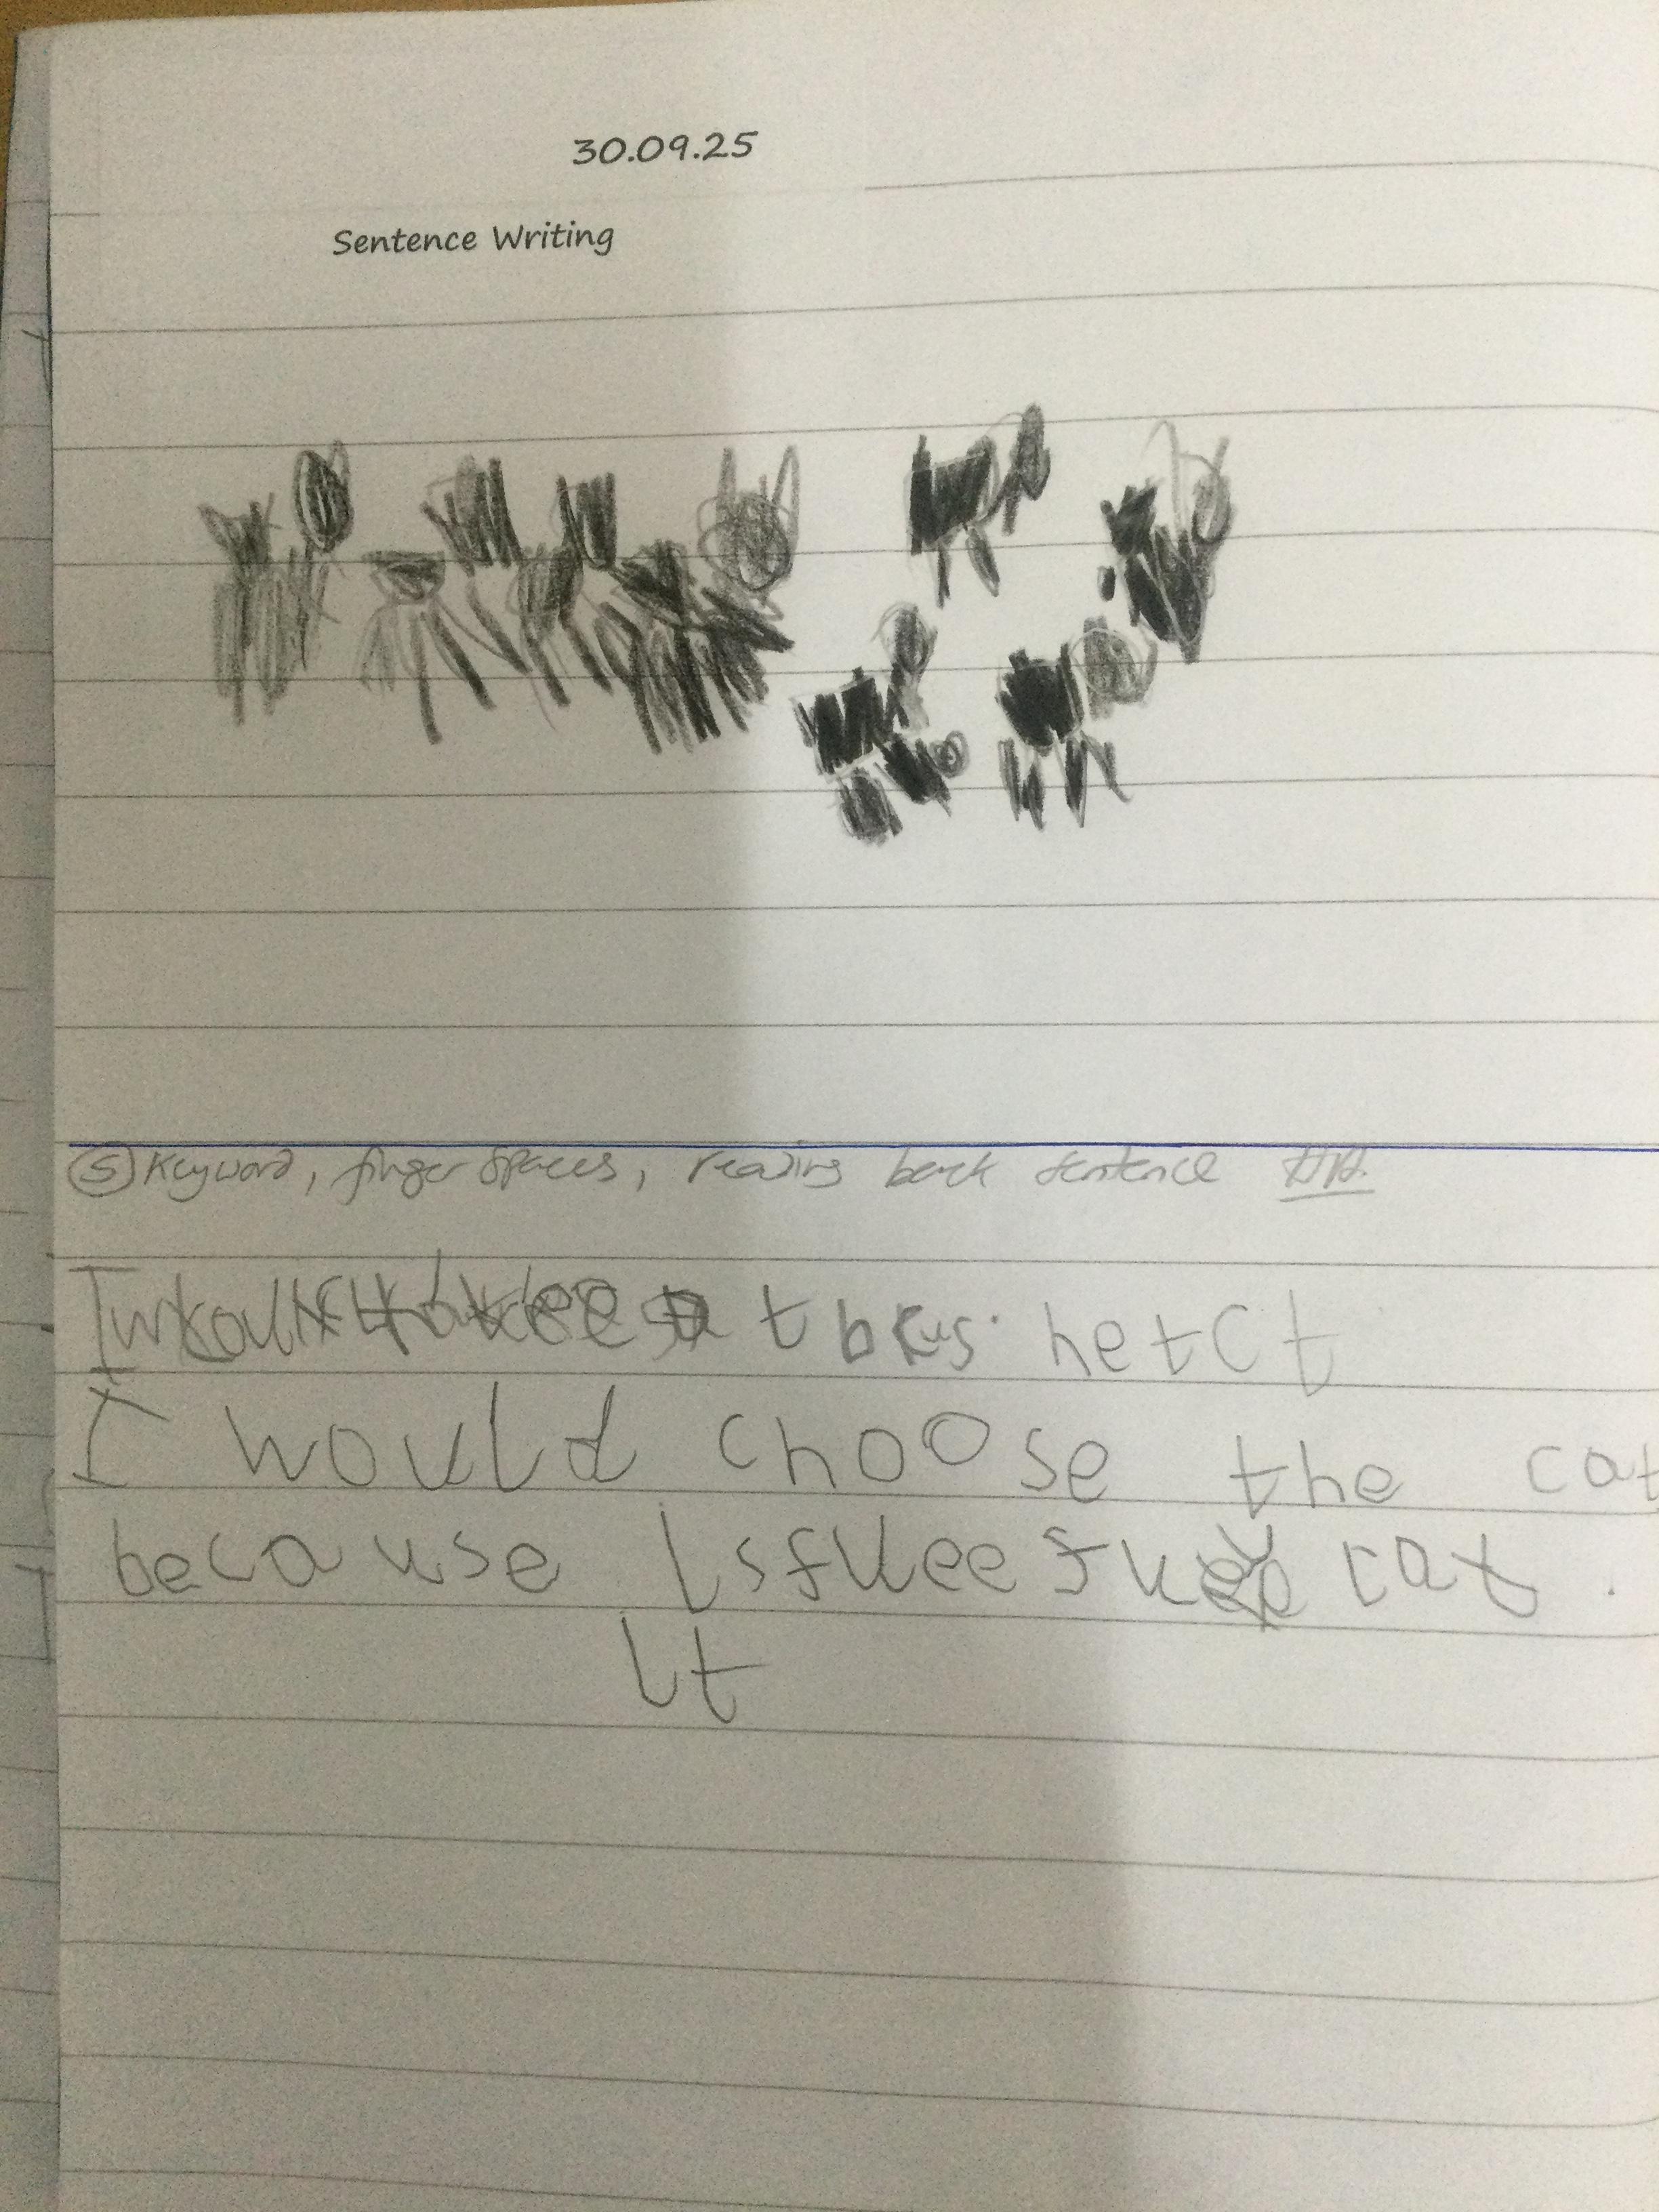 30.09.25
Sentence Writing
(S) Keyword, finger spaces, reading back sentence
t bcus. hetct
I would choose the cat
because is cat.
It